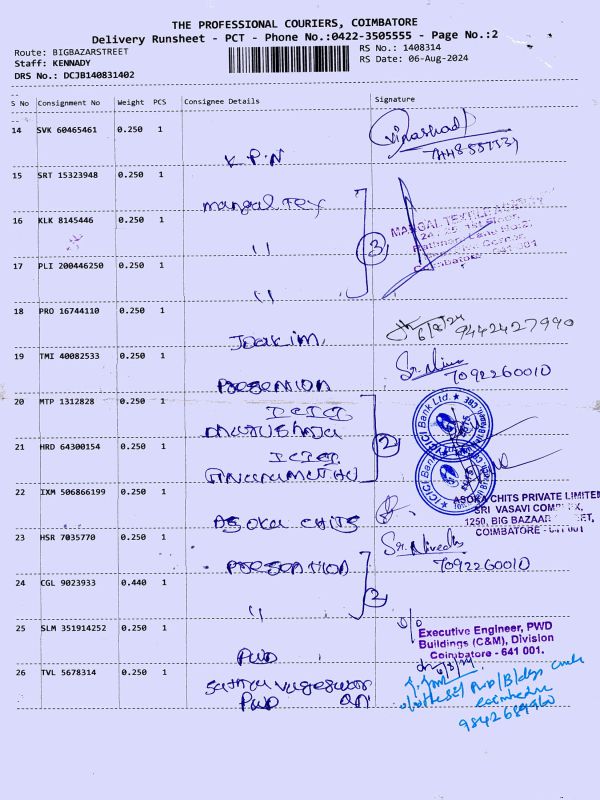 THE PROFESSIONAL COURIERS, COIMBATORE
Delivery Runsheet - PCT - Phone No.:0422-3505555 - Page No.:2
Route: BIGBAZARSTREET
RS No.: 1408314
Staff: KENNADY
RS Date: 06-Aug-2024
DRS No.: DCJB140831402
S No Consignment No Weight PCS Consignee Details Signature
14 SVK 60465461 0.250 1
K.P.N
15 SRT 15323948 0.250 1
Mangal Tex
16 KLK 8145446 0.250 1
"
MANGAL TEXTILE AGENCY
3
17 PLI 200446250 0.250 1
Coimbatore - 641 001
"
18 PRO 16744110 0.250 1
Joakim
6/8/24
9442427990
19 TMI 40082533 0.250 1
7092260010
20 MTP 1312828 0.250 1
ICICI
ICICI Bank Ltd.
2
21 HRD 64300154 0.250 1
ICICI
ICICI Bank Ltd.
22 IXM 506866199 0.250 1
Asoka Chits
ASOKA CHITS PRIVATE LIMITED
SRI VASAVI COMPLEX,
1250, BIG BAZAAR STREET,
COIMBATORE - 641 001
23 HSR 7035770 0.250 1
7092260010
24 CGL 9023933 0.440 1
2
"
25 SLM 351914252 0.250 1
PWD
Executive Engineer, PWD
Buildings (C&M), Division
Coimbatore - 641 001.
6/8/24
26 TVL 5678314 0.250 1
PWD
9842684960